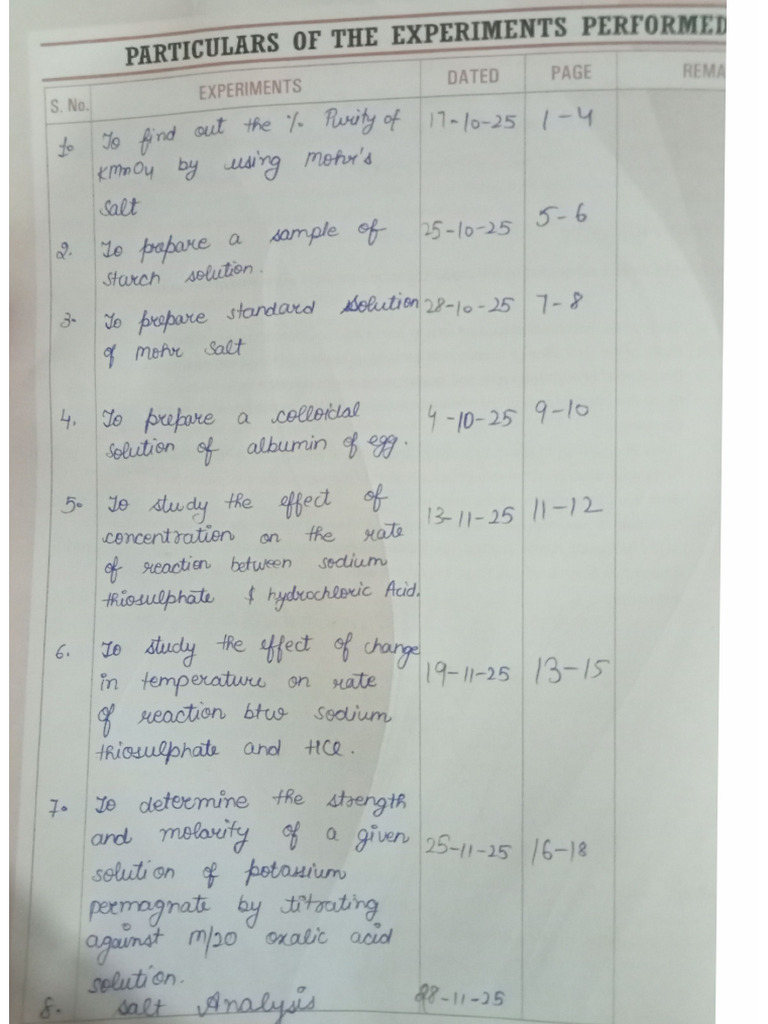 PARTICULARS OF THE EXPERIMENTS PERFORMED
S. No. EXPERIMENTS DATED PAGE REMA
1. To find out the % Purity of 17-10-25 1-4
KMnO4 by using Mohr's
Salt
2. To prepare a sample of 25-10-25 5-6
starch solution.
3. To prepare standard solution 28-10-25 7-8
of mohr salt
4. To prepare a colloidal 4-10-25 9-10
solution of albumin of egg.
5. To study the effect of 13-11-25 11-12
concentration on the rate
of reaction between sodium
thiosulphate & hydrochloric Acid.
6. To study the effect of change 19-11-25 13-15
in temperature on rate
of reaction btw sodium
thiosulphate and HCl.
7. To determine the strength
and molarity of a given 25-11-25 16-18
solution of potassium
permagnate by titrating
against M/20 oxalic acid
solution.
8. Salt Analysis 28-11-25